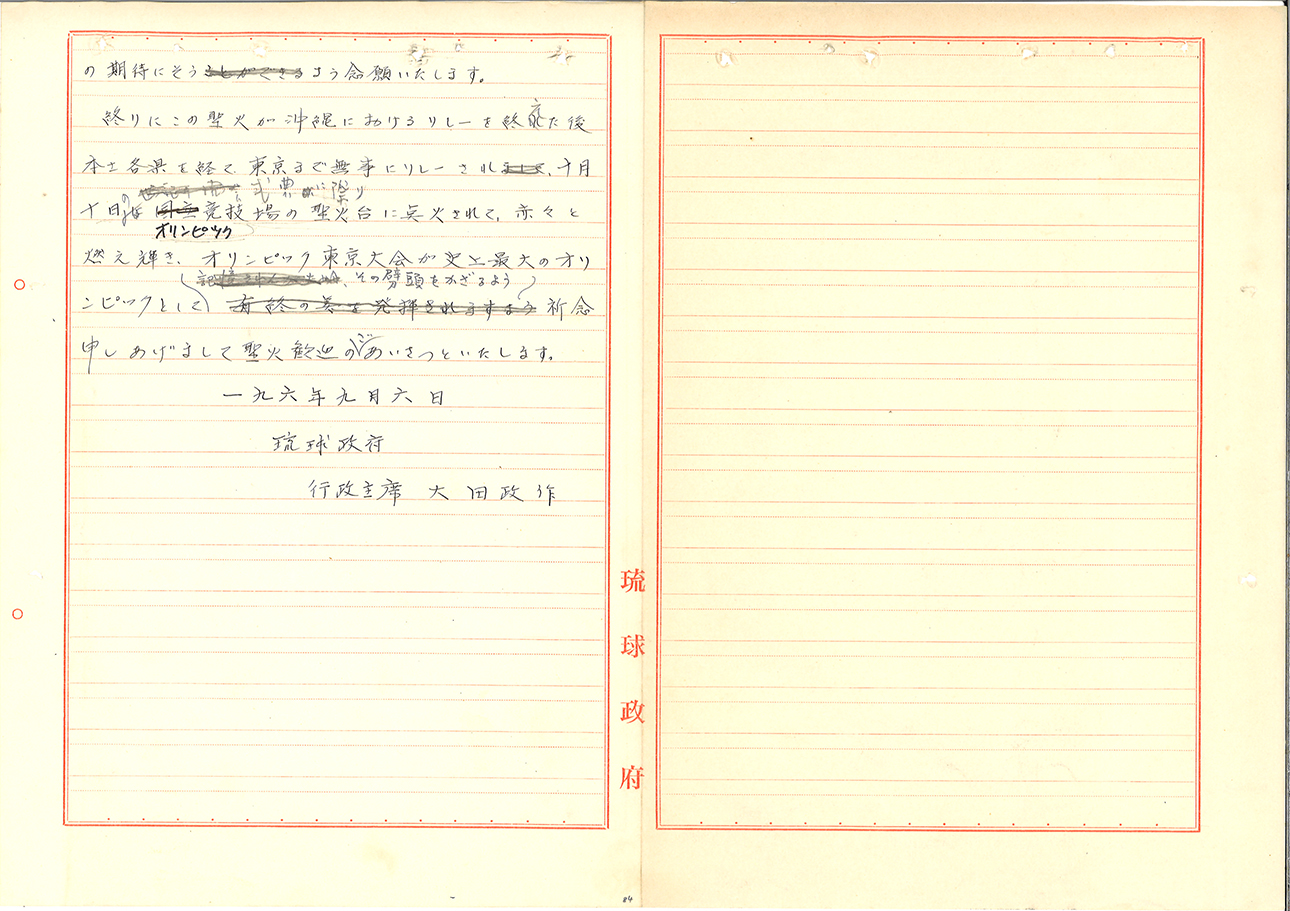 の期待にそうことができるよう念願いたします。
終りにこの聖火が沖縄におけるリレーを終了した後
本土各県を経て東京まで無事にリレーされまして、十月
式典に際り
十日の 国立競技場の聖火台に点火されて、赤々と
オリンピック
燃え輝き、オリンピック東京大会が史上最大のオリ
、その劈頭をかざるよう
ンピックとして有終の美を発揮されますよう祈念
申しあげまして聖火歓迎のごあいさつといたします。
一九六年九月六日
琉球政府
行政主席 大田政作
琉球政府
84